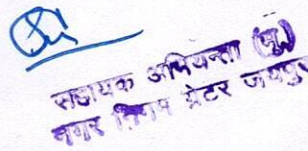 सहायक अभियन्ता (मु०)
नगर निगम ग्रेटर जयपुर